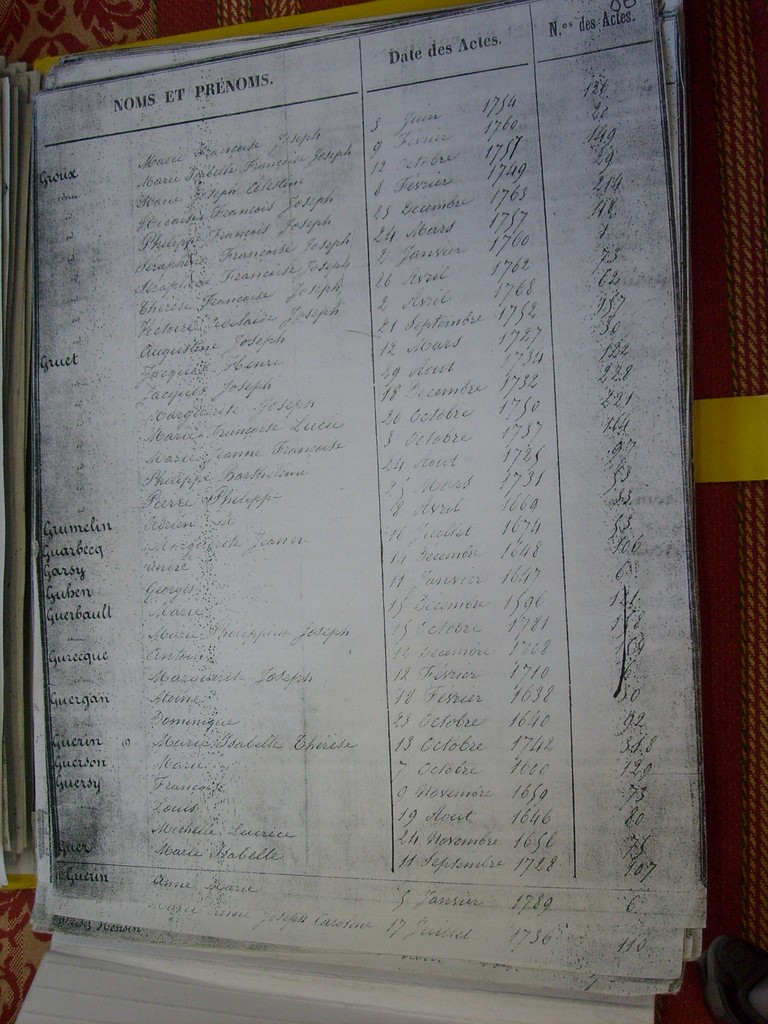 NOMS ET PRÉNOMS. Date des Actes. N.os des Actes.
Groux Marie Françoise Joseph 3 Juin 1754 126
idem Marie Isabelle Françoise Joseph 9 Février 1760 20
id Marie Joseph Célestine 12 Octobre 1757 149
id Nicaise François Joseph 8 Février 1749 29
id Philippe François Joseph 23 Decembre 1763 214
id Seraphine Françoise Joseph 24 Mars 1757 48
id Françoise Joseph 2 Janvier 1760 1
id Thérèse Françoise Joseph 26 Avril 1762 73
id Victoire Adelaide Joseph 2 Avril 1768 62
Gruet Augustine Joseph 21 Septembre 1752 157
Jacques Henri 12 Mars 1727 30
Jacques Joseph 29 Aout 1734 122
Marguerite Joseph 18 Decembre 1732 228
Marie Françoise Lucie 20 Octobre 1750 221
Marie Jeanne Françoise 3 Octobre 1737 164
Philippe Barthelemi 24 Aout 97
Pierre Philippe 25 Mars 1731 53
Grumelin Adrien 8 Avril 1669
Guarbecq Marguerite Jeanne 16 Juillet 1674 53
Garsy André 14 Decembre 1648 106
Guhen Georges 11 Janvier 1647 6
Guerbault Marie 15 Decembre 1596 121
Marie Philippine Joseph 15 Octobre 1781
Gurecque Antoine 12 Decembre 1708 169
Marguerite Joseph 12 Février 1710
Guergan Antoine 18 Fevrier 1638
Dominique 23 Octobre 1640 92
Guerin Marie Isabelle Thérèse 13 Octobre 1742 318
Guerson Marie 7 Octobre 1600 129
Guersy Françoise 9 Novembre 1659 73
Louis 19 Aout 1646 80
Michelle Lucrece 24 Novembre 1656 75
Guer Marie Isabelle 11 Septembre 1728 107
Guerin Anne Marie 5 Janvier 1789 6
Hensin Marie Anne Joseph Caroline 17 Juillet 1736 110